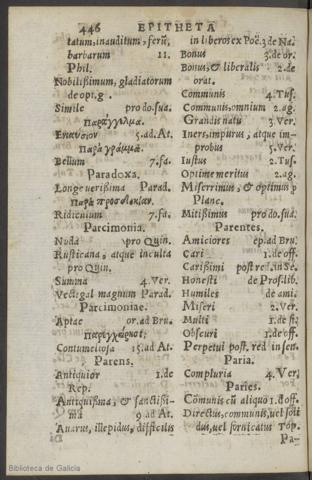 446 EPITHETA
tatum, inauditum, ferũ,
barbarum 11.
Phil.
Nobilissimum, gladiatorum
de opt. g.
Simile pro do. sua.
Παράγγελμα.
5. ad. At.
Παρὰ γράμμα.
Bellum 7. fa.
Paradoxa.
Longe verissima Parad.
Παρὰ προσδοκίαν.
Ridiculum 7. fa.
Parcimonia.
Nuda pro Quin.
Rusticana, atque inculta
pro Quin.
Summa 4. Ver.
Vectigal magnum Parad.
Parcimoniae.
Aptae or. ad Bru.
Contumeliosa 15. ad At.
Parens.
Antiquior 1. de
Rep.
Antiquissima, & sanctissi-
ma 9 ad At.
Avarus, illepidus, difficilis
in liberos ex Poë. 3. de Na.
Bonus 3. de or.
Bonus, & liberalis 2. de
orat.
Communis 4. Tus.
Communis, omnium 2. ag.
Grandis natu 3. Ver.
Iners, impurus, atque im-
probus 5. Ver.
Iustus 2. Tus.
Optime meritus 2. ag.
Miserrimus, & optimus p
Planc.
Mitissimus pro do. sua.
Parentes.
Amiciores ep. ad Bru.
Cari 1. de off.
Carissimi post red. in Se.
Honesti de Prof. lib.
Humiles de ami.
Miseri 2. Ver.
Multi 1. de fi.
Obscuri 1. de off.
Perpetui post. red in sen.
Paria.
Compluria 4. Ver.
Paries.
Cõmunis cũ aliquo 1. d off.
Directus, communis, uel soli
dus, uel fornicatus Top.
Pa-
Biblioteca de Galicia